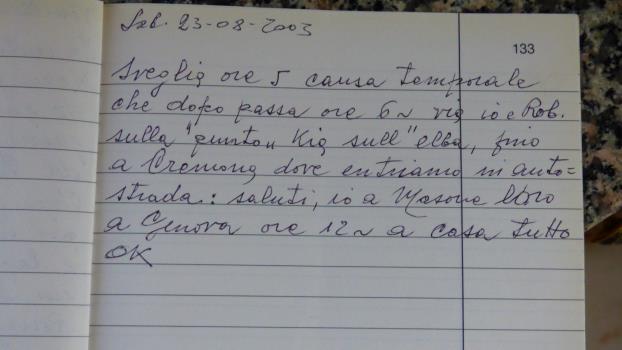 Sab. 23-08-2003
133
Sveglia ore 5 causa temporale
che dopo passa ore 6~ via io e Rob.
sulla "punto„ Kia sull "elba, fino
a Cremona dove entriamo in auto=
strada: saluti, io a Masone loro
a Genova ore 12~ a casa tutto
OK